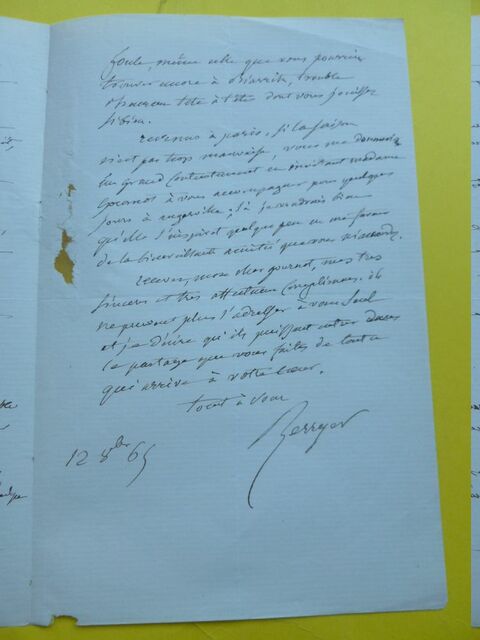 foule, même celle que vous pourriez
trouver encore à Biarritz, trouble
tête à tête dont vous jouissez
si bien.
revenus à paris, si la saison
n'est pas trop mauvaise, vous me donnerez
un grand contentement en invitant madame
Gournot à vous accompagner pour quelques
jours à augerville; là je voudrais bien
qu'elle s'inspirât quelque peu en ma faveur
de la bienveillante amitié que vous m'accordez.
recevez, mon cher gournot, mes très
sincères et très affectueux complimens. ils
ne peuvent plus s'adresser à vous seul
et je désire qu'ils puissent entrer dans
ce partage que vous faites de tout ce
qui arrive à votre cœur.
tout à vous
Berryer
12 8bre 65